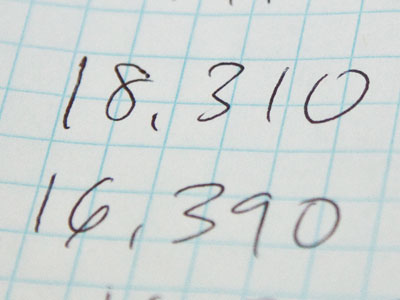 18,310
16,390